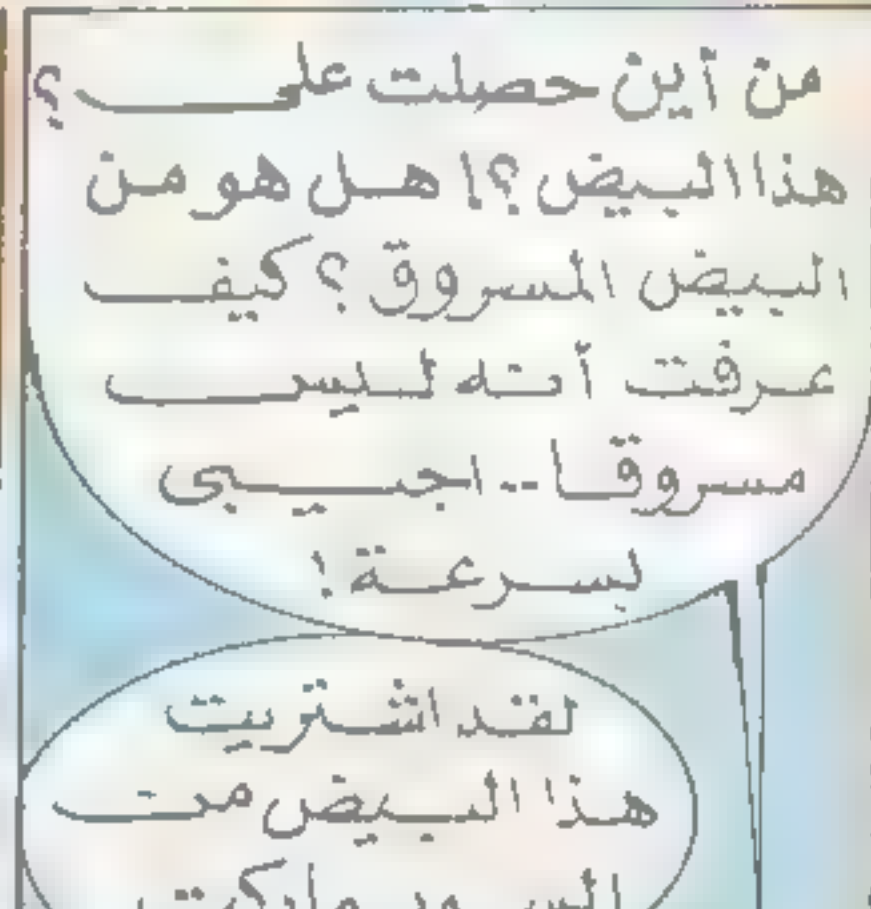 من أين حصلت على ؟
هذا البيض ؟! هل هو من
البيض المسروق ؟ كيف
عرفت أنه ليس
مسروقا .. اجيبى
بسرعة !
لقد اشتريت
هذا البيض من
السوبر ماركت